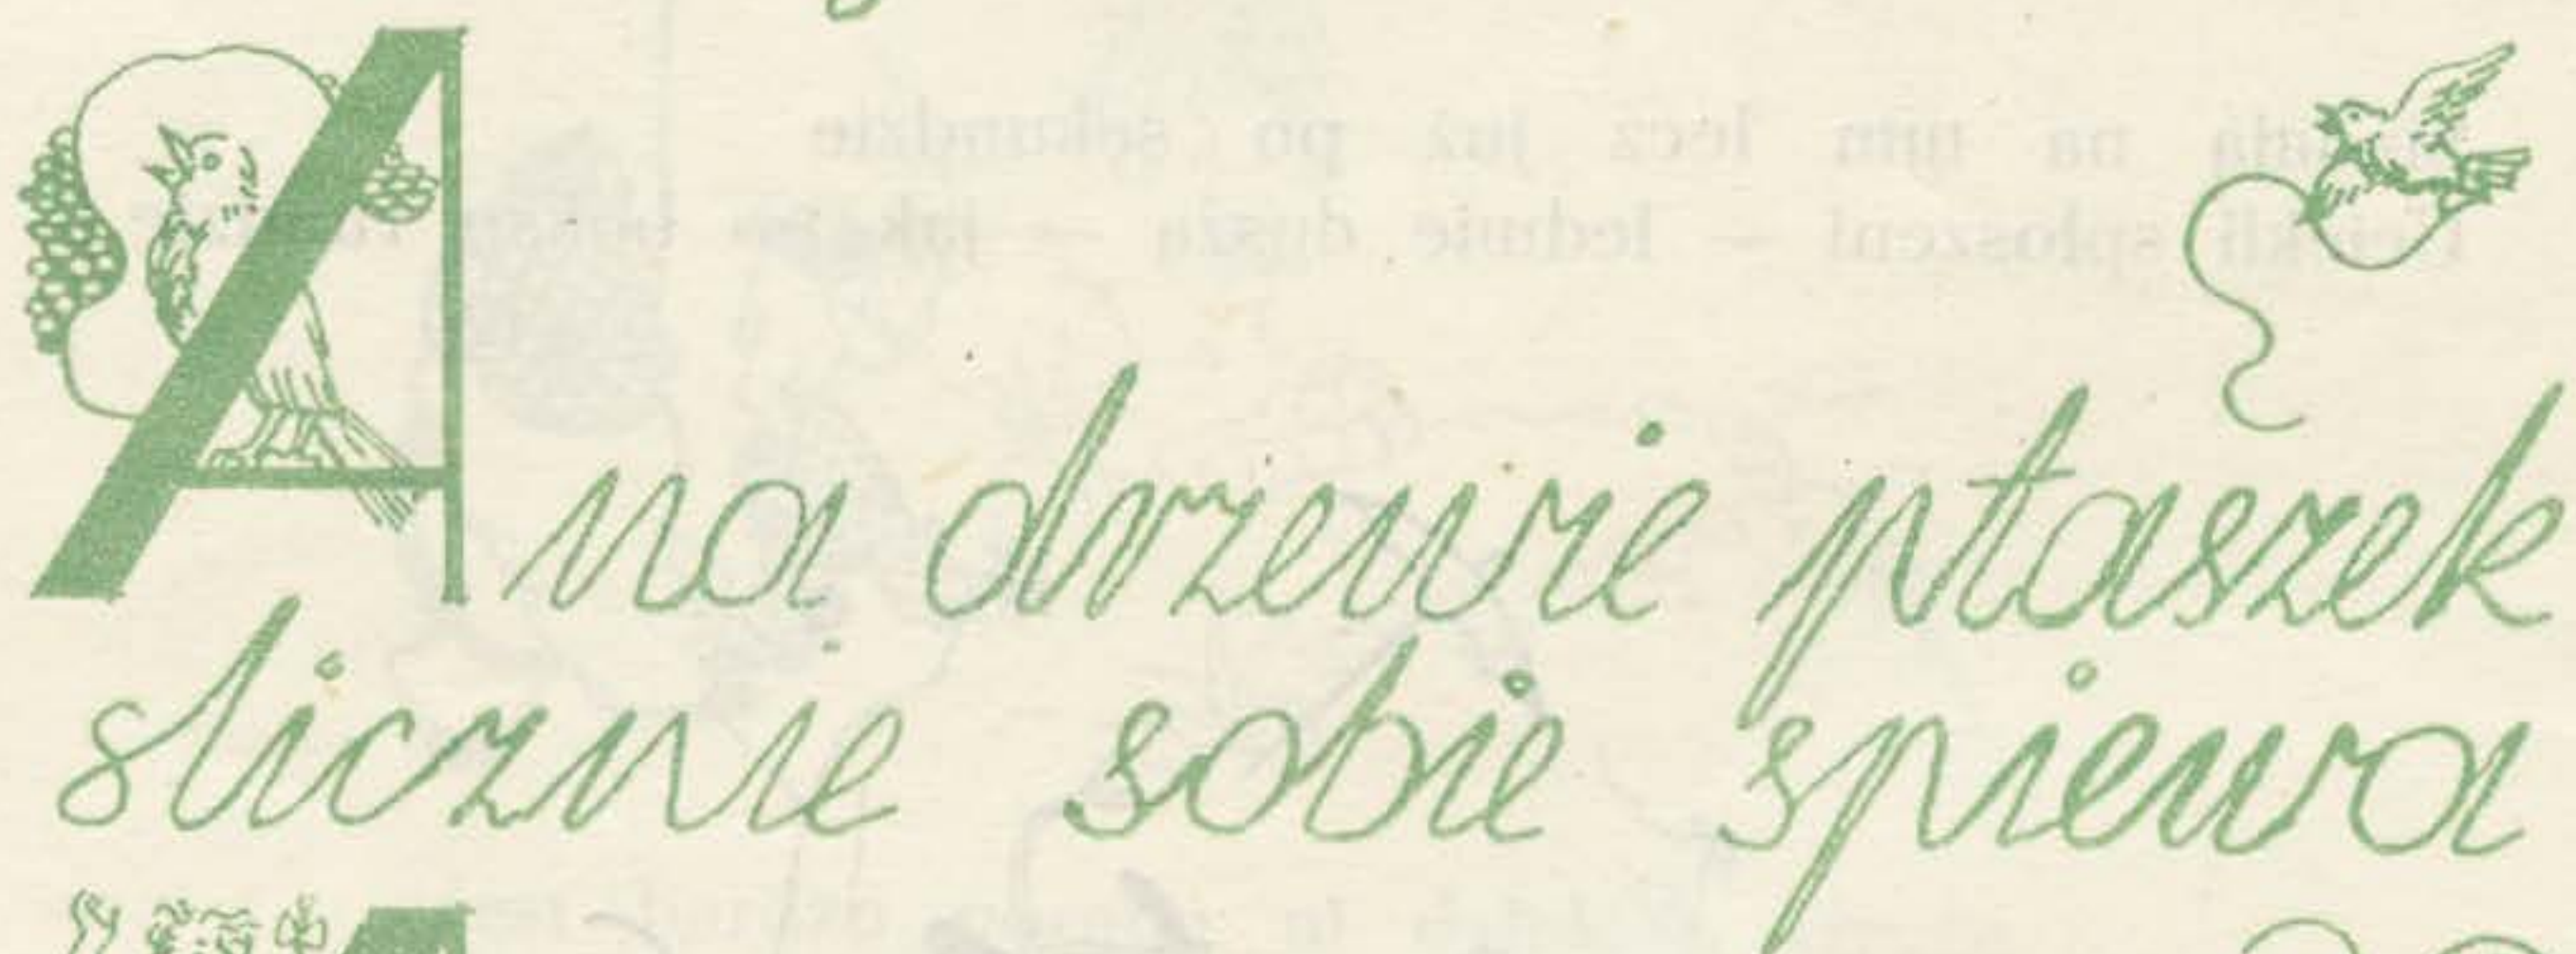 A na drzewie ptaszek
slicznie sobie spiewa